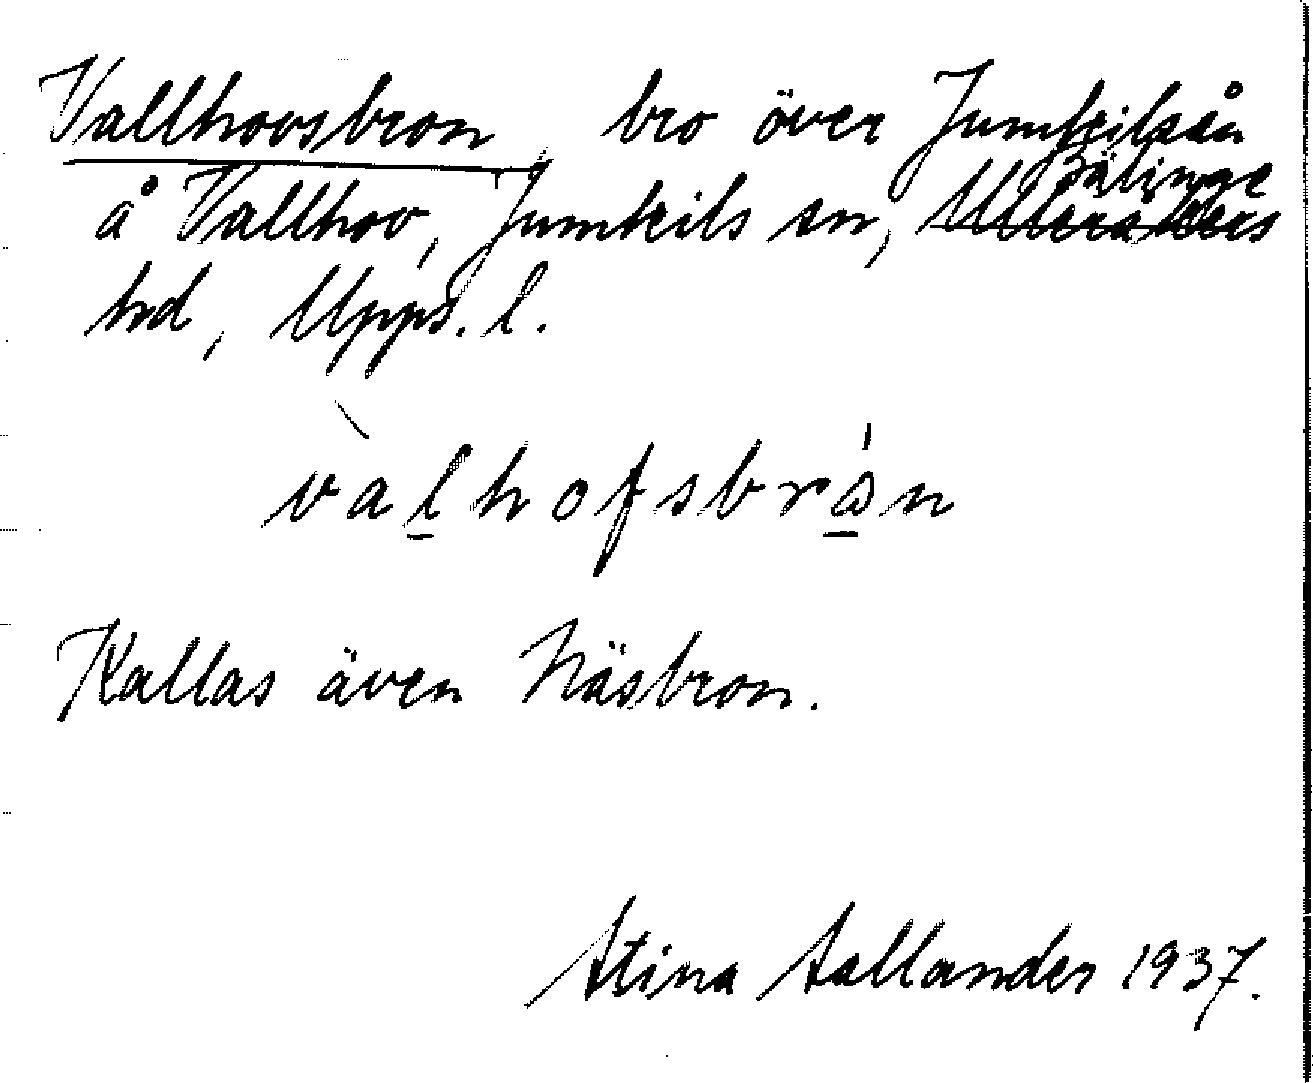 Vallhovsbron, bro över Jumkilsån
å Vallhov, Jumkils sn, Ulleråkers Bälinge
hd, Upps. l.
valhofsbrón
Kallas även Näsbron.
Stina Sallander 1937.